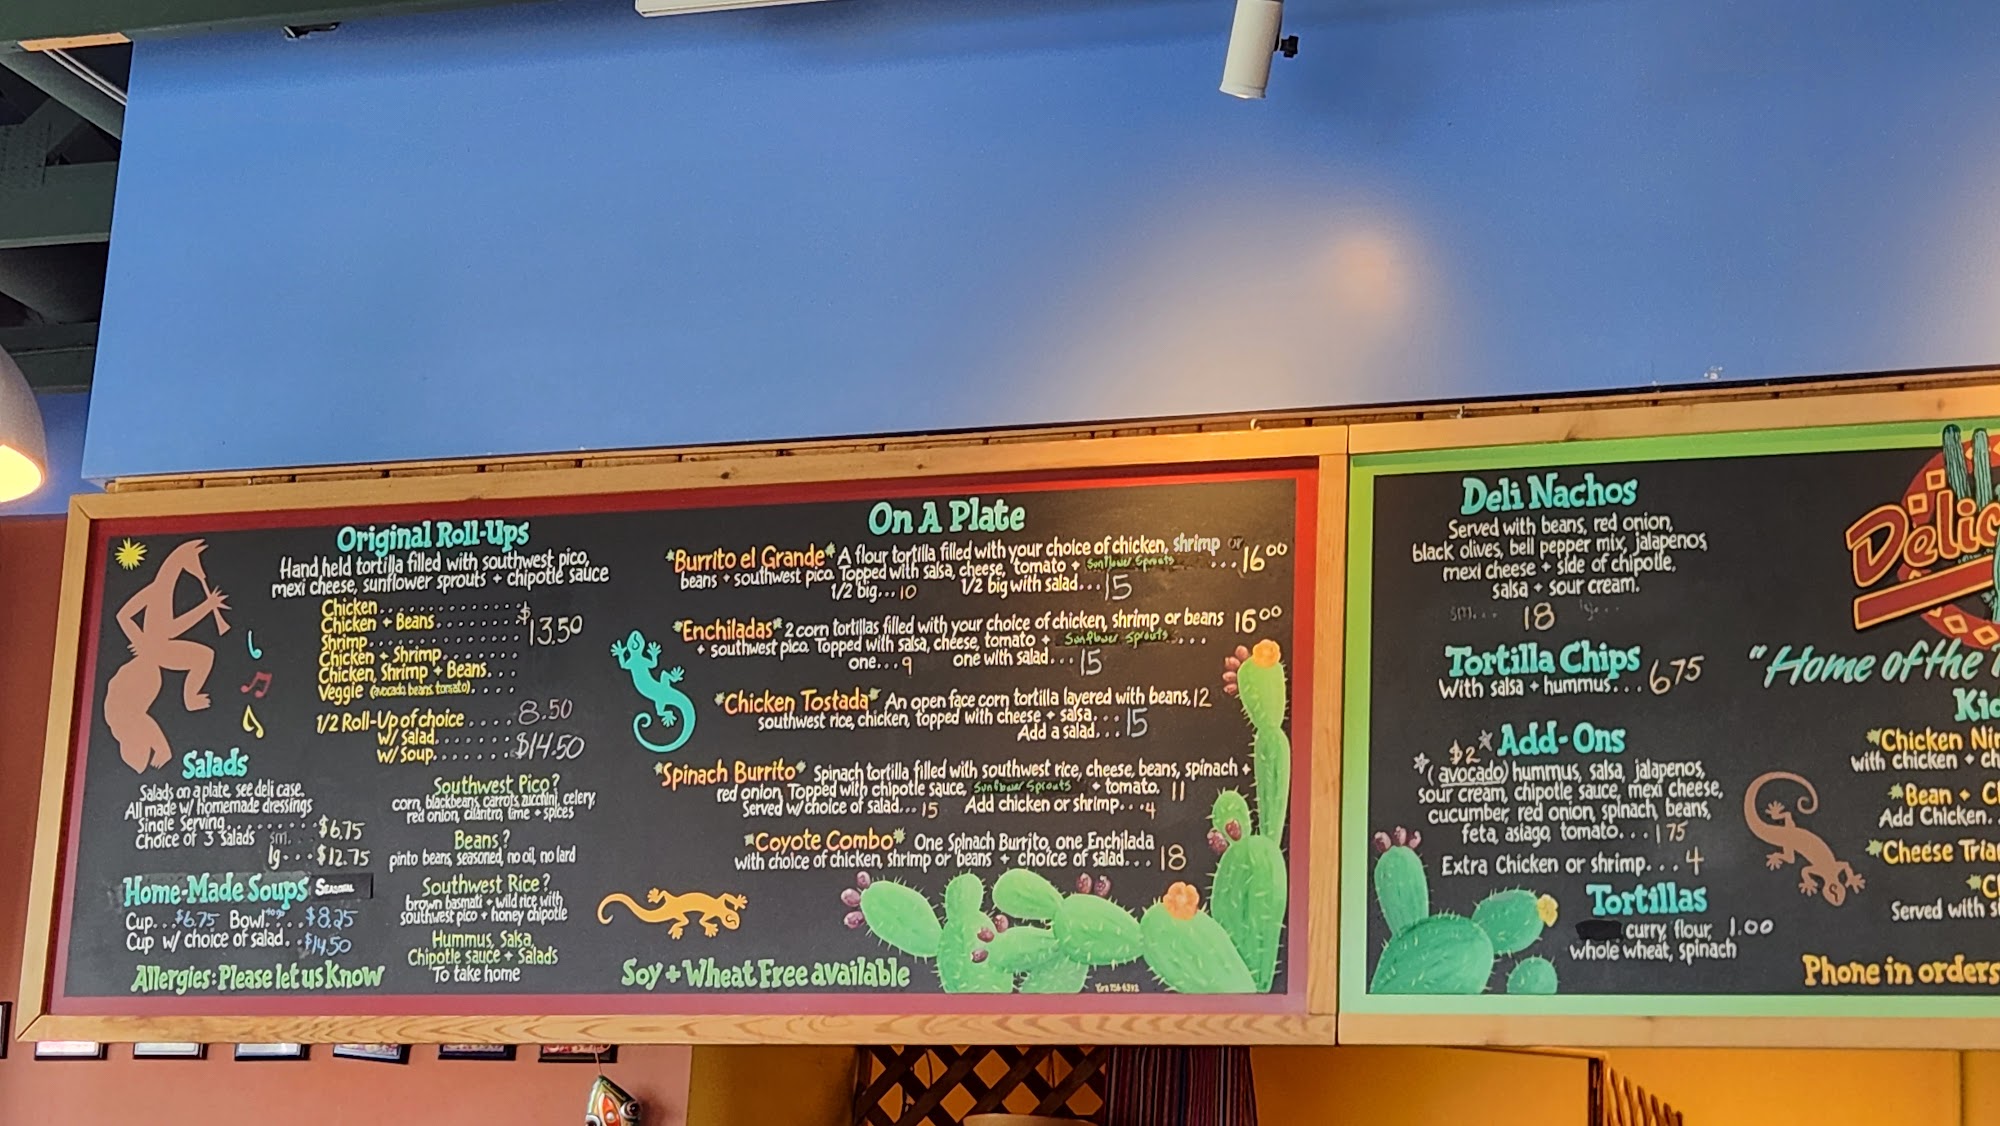 Original Roll-Ups
Hand held tortilla filled with southwest pico,
mexi cheese, sunflower sprouts + chipotle sauce
Chicken..............
Chicken + Beans........
Shrimp..............
$13.50
Chicken + Shrimp.......
Chicken, Shrimp + Beans...
Veggie (avocado beans tomato)....
1/2 Roll-Up of choice.... 8.50
w/ Salad.......
w/ Soup....... $14.50
Salads
Salads on a plate, see deli case.
All made w/ homemade dressings
Single Serving........ $6.75
Choice of 3 Salads sm.
lg... $12.75
Home-Made Soups Seasonal
Cup... $6.75 Bowl... $8.25
Cup w/ choice of salad.. $14.50
Allergies: Please let us Know
Southwest Pico?
corn, blackbeans, carrots, zucchini, celery,
red onion, cilantro, lime + spices
Beans?
pinto beans, seasoned, no oil, no lard
Southwest Rice?
brown basmati + wild rice with
southwest pico + honey chipotle
Hummus, Salsa,
Chipotle sauce + Salads
To take home
On A Plate
*Burrito el Grande* A flour tortilla filled with your choice of chicken, shrimp or
beans + southwest pico. Topped with salsa, cheese, tomato + Sunflower Sprouts ...1600
1/2 big... 10 1/2 big with salad... 15
*Enchiladas* 2 corn tortillas filled with your choice of chicken, shrimp or beans 1600
+ southwest pico. Topped with salsa, cheese, tomato + Sunflower Sprouts....
one... 9 one with salad... 15
*Chicken Tostada* An open face corn tortilla layered with beans, 12
southwest rice, chicken, topped with cheese + salsa...
Add a salad... 15
*Spinach Burrito* Spinach tortilla filled with southwest rice, cheese, beans, spinach +
red onion. Topped with chipotle sauce, Sunflower Sprouts + tomato. 11
Served w/ choice of salad... 15 Add chicken or shrimp... 4
*Coyote Combo* One Spinach Burrito, one Enchilada
with choice of chicken, shrimp or beans + choice of salad... 18
Soy + Wheat Free available
Deli Nachos
Served with beans, red onion,
black olives, bell pepper mix, jalapenos,
mexi cheese + side of chipotle,
salsa + sour cream.
sm... 18 lg...
Tortilla Chips
With salsa + hummus... 6.75
$2 Add-Ons
(avocado) hummus, salsa, jalapenos,
sour cream, chipotle sauce, mexi cheese,
cucumber, red onion, spinach, beans,
feta, asiago, tomato... 1 75
Extra Chicken or shrimp... 4
Tortillas
curry, flour, 1.00
whole wheat, spinach
Delic
"Home of the
Kid
*Chicken Nin
with chicken + ch
*Bean + C
Add Chicken.
*Cheese Tria
*C
Served with s
Phone in orders